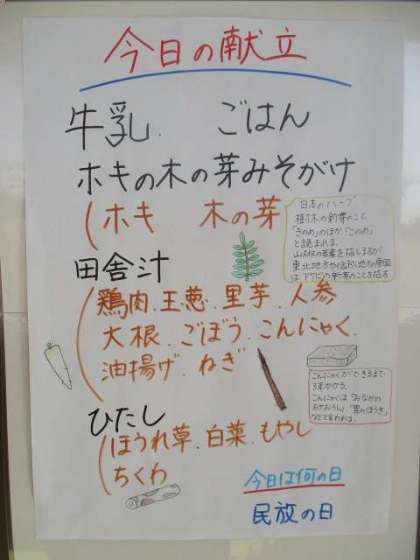 今日の献立
牛乳 ごはん
ホキの木の芽みそがけ
(ホキ 木の芽
日本のハーブ
田舎汁
鶏肉.玉葱.里芋.人参
大根.ごぼう.こんにゃく.
油揚げ.ねぎ
こんにゃくができるまで
3年かかる。
ひたし
ほうれ草.白菜.もやし
ちくわ
今日は何の日
民放の日